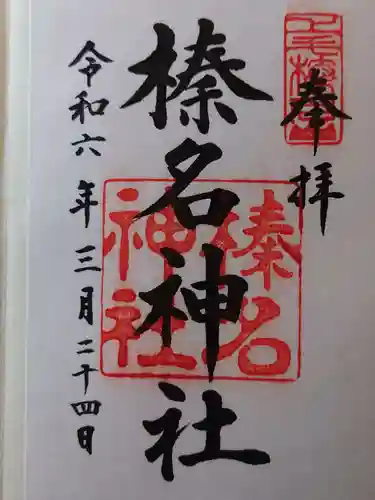 奉拝
榛名神社
令和六年三月二十四日
榛名
神社